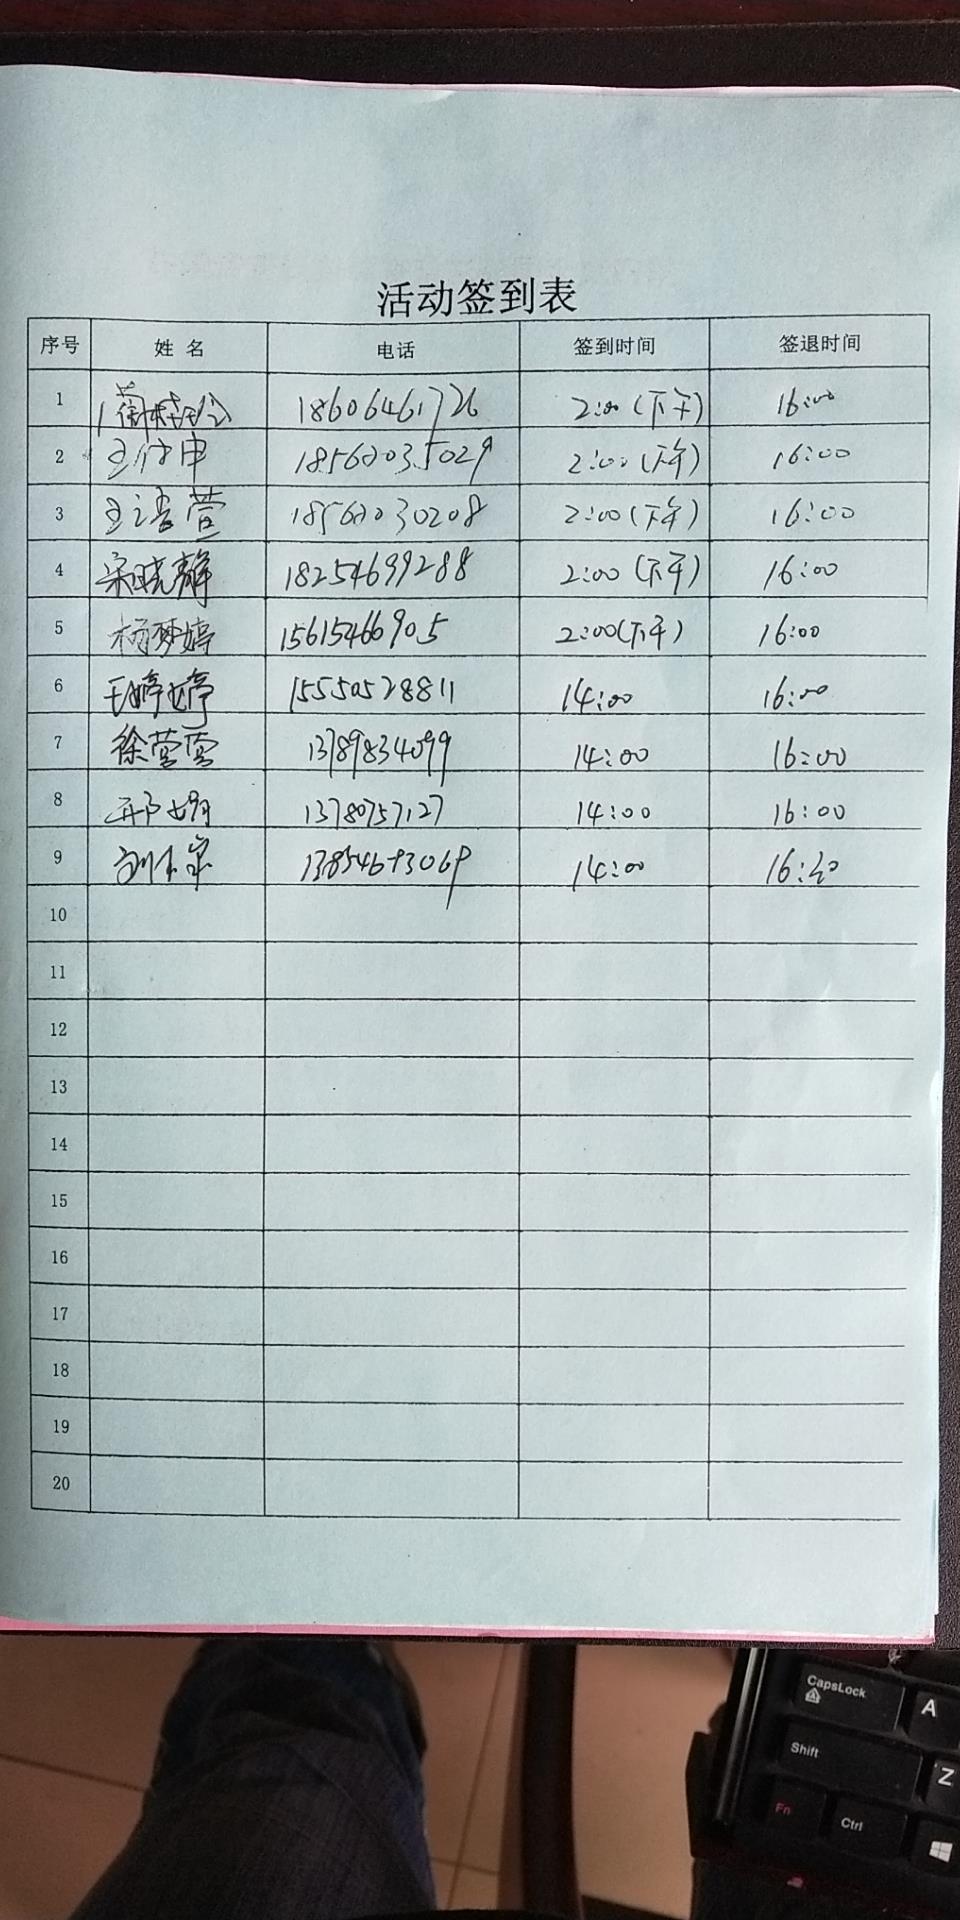 活动签到表
序号 姓 名 电话 签到时间 签退时间
1 18606461726 2:00(下午) 16:00
2 18562035029 2:00(下午) 16:00
3 18562030208 2:00(下午) 16:00
4 宋晓静 18254699288 2:00(下午) 16:00
5 杨梦婷 15615466905 2:00(下午) 16:00
6 王婷婷 15550528811 14:00 16:00
7 徐莹莹 13789834099 14:00 16:00
8 13780757127 14:00 16:00
9 14:00
10
11
12
13
14
15
16
17
18
19
20
CapsLock A
Shift Z
Fn Ctrl